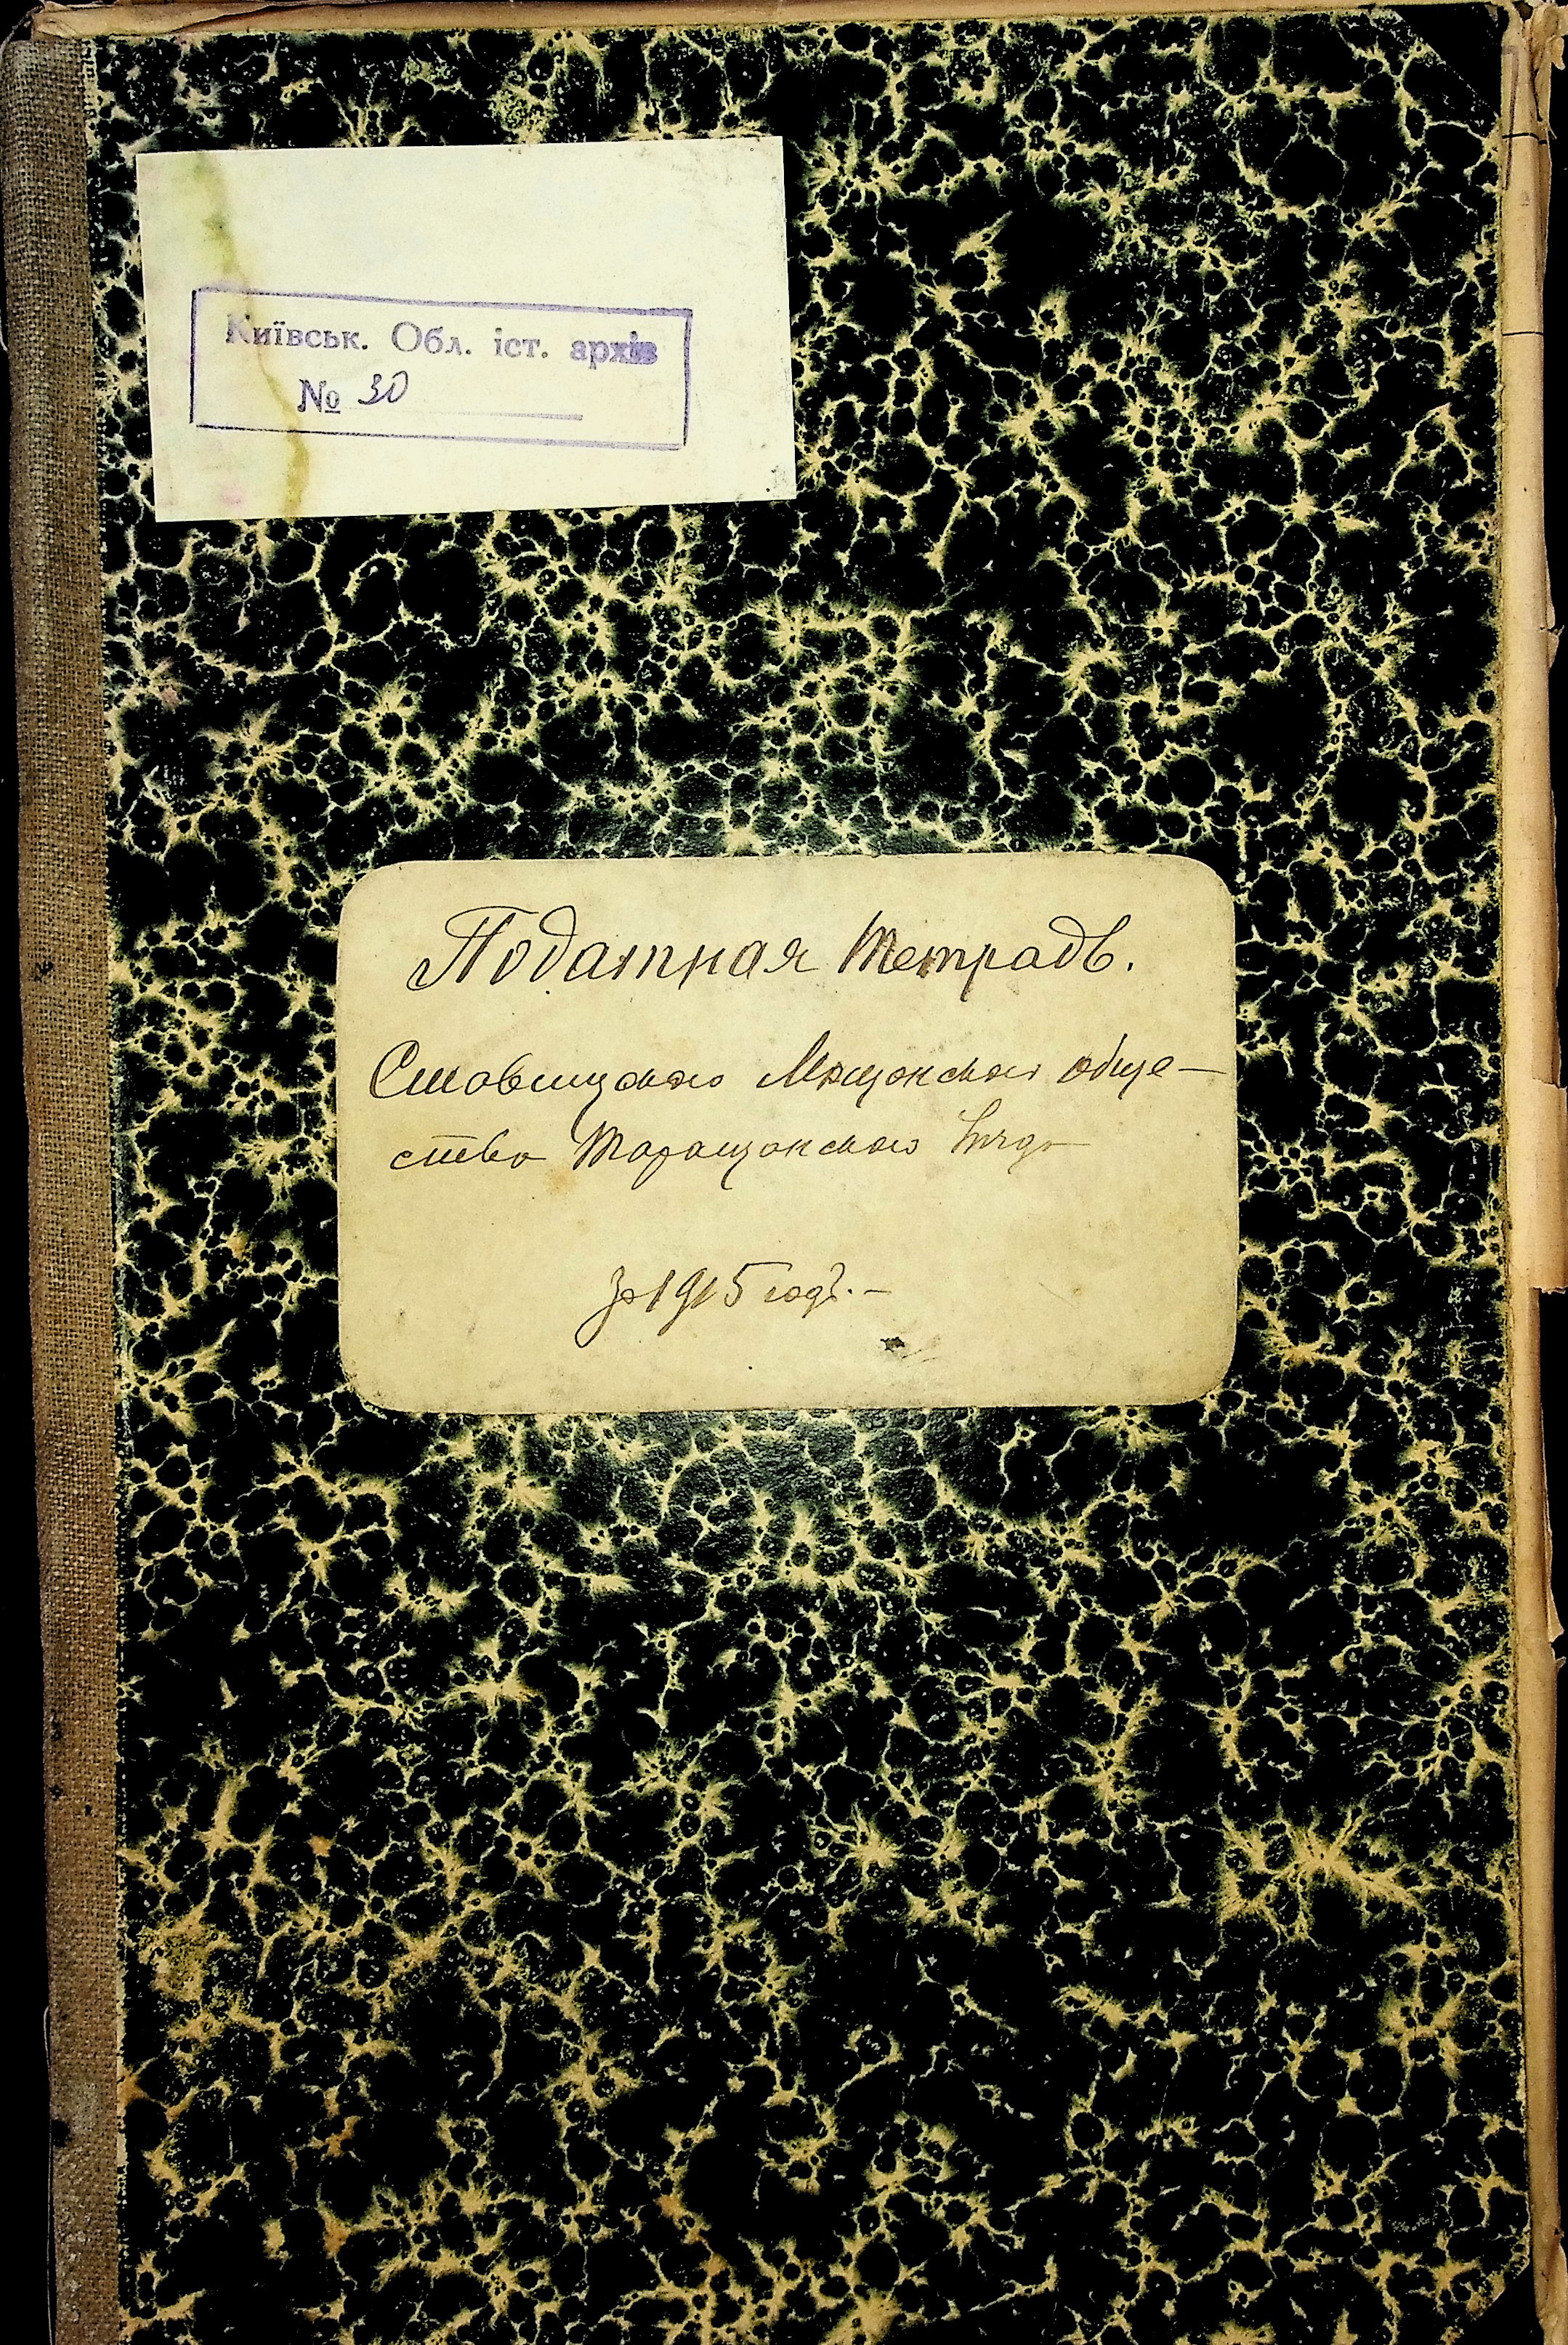 Київськ. Обл. іст. архів
№ 30
Податная тетрадь.
Ставищскаго Мѣщанскаго обще-
ства Таращанскаго уѣзда
за 1915 годъ.-